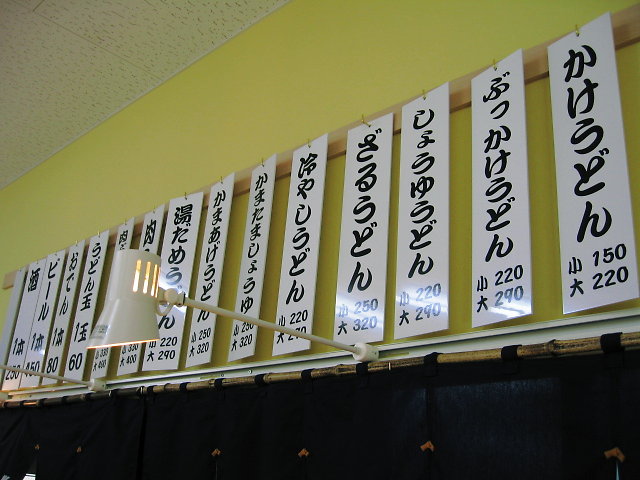 かけうどん
小 150
大 220
ぶっかけうどん
小 220
大 290
しょうゆうどん
小 220
大 290
ざるうどん
小 250
大 320
冷やしうどん
小 220
大 270
かまたましょうゆ
小 250
大 320
かまあげうどん
小 250
大 320
湯だめう
ん
小 220
大 290
肉
330
400
肉
330
400
うどん玉
1玉
60
おでん
1本
80
ビール
1本
酒
1本